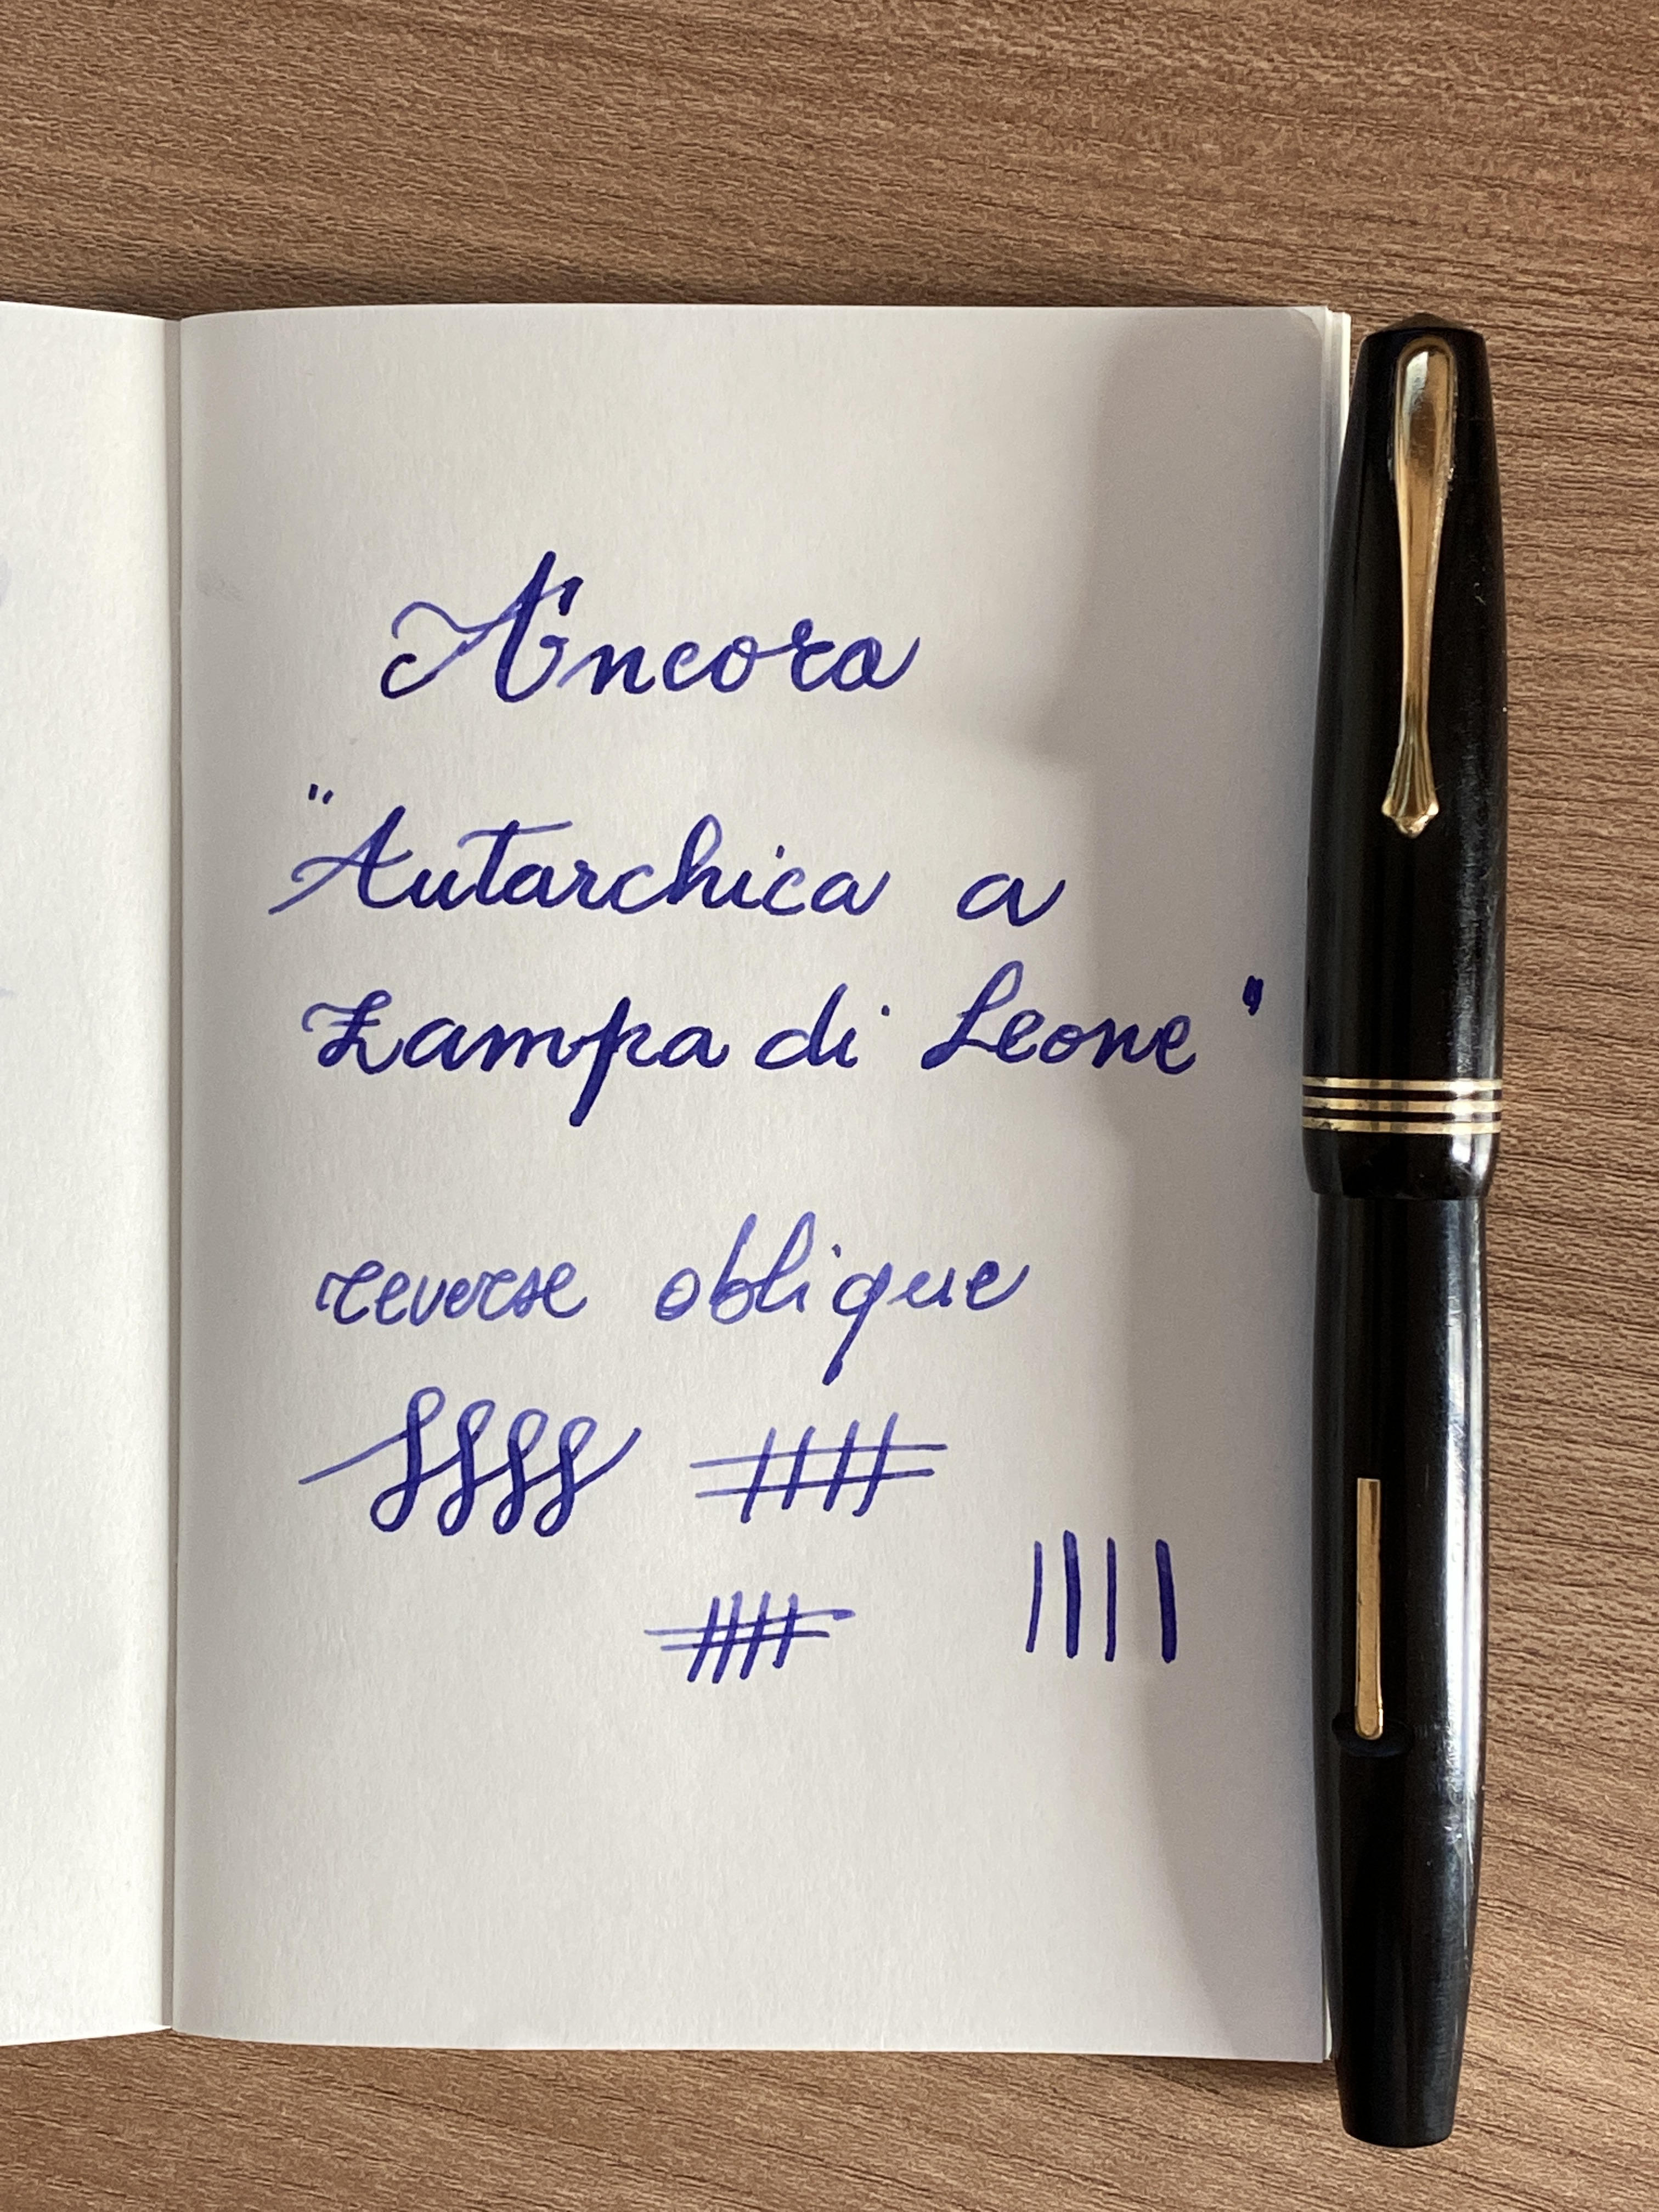 Ancora
"Autarchica a
Zampa di Leone"
reverse oblique